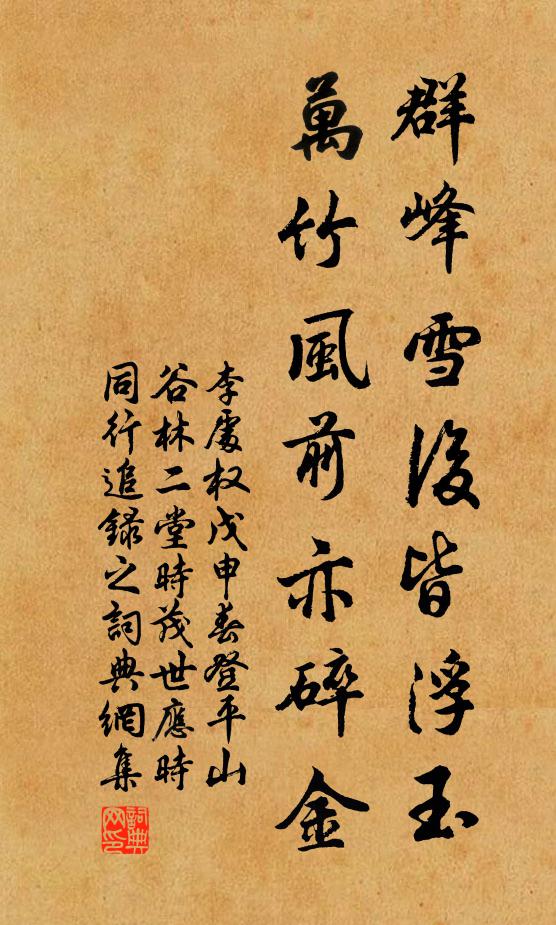 群峰雪後皆浮玉
萬竹風前亦碎金
李處权戊申春登平山
谷林二堂時茂世應時
同行追録之詞典網集
詞典网印